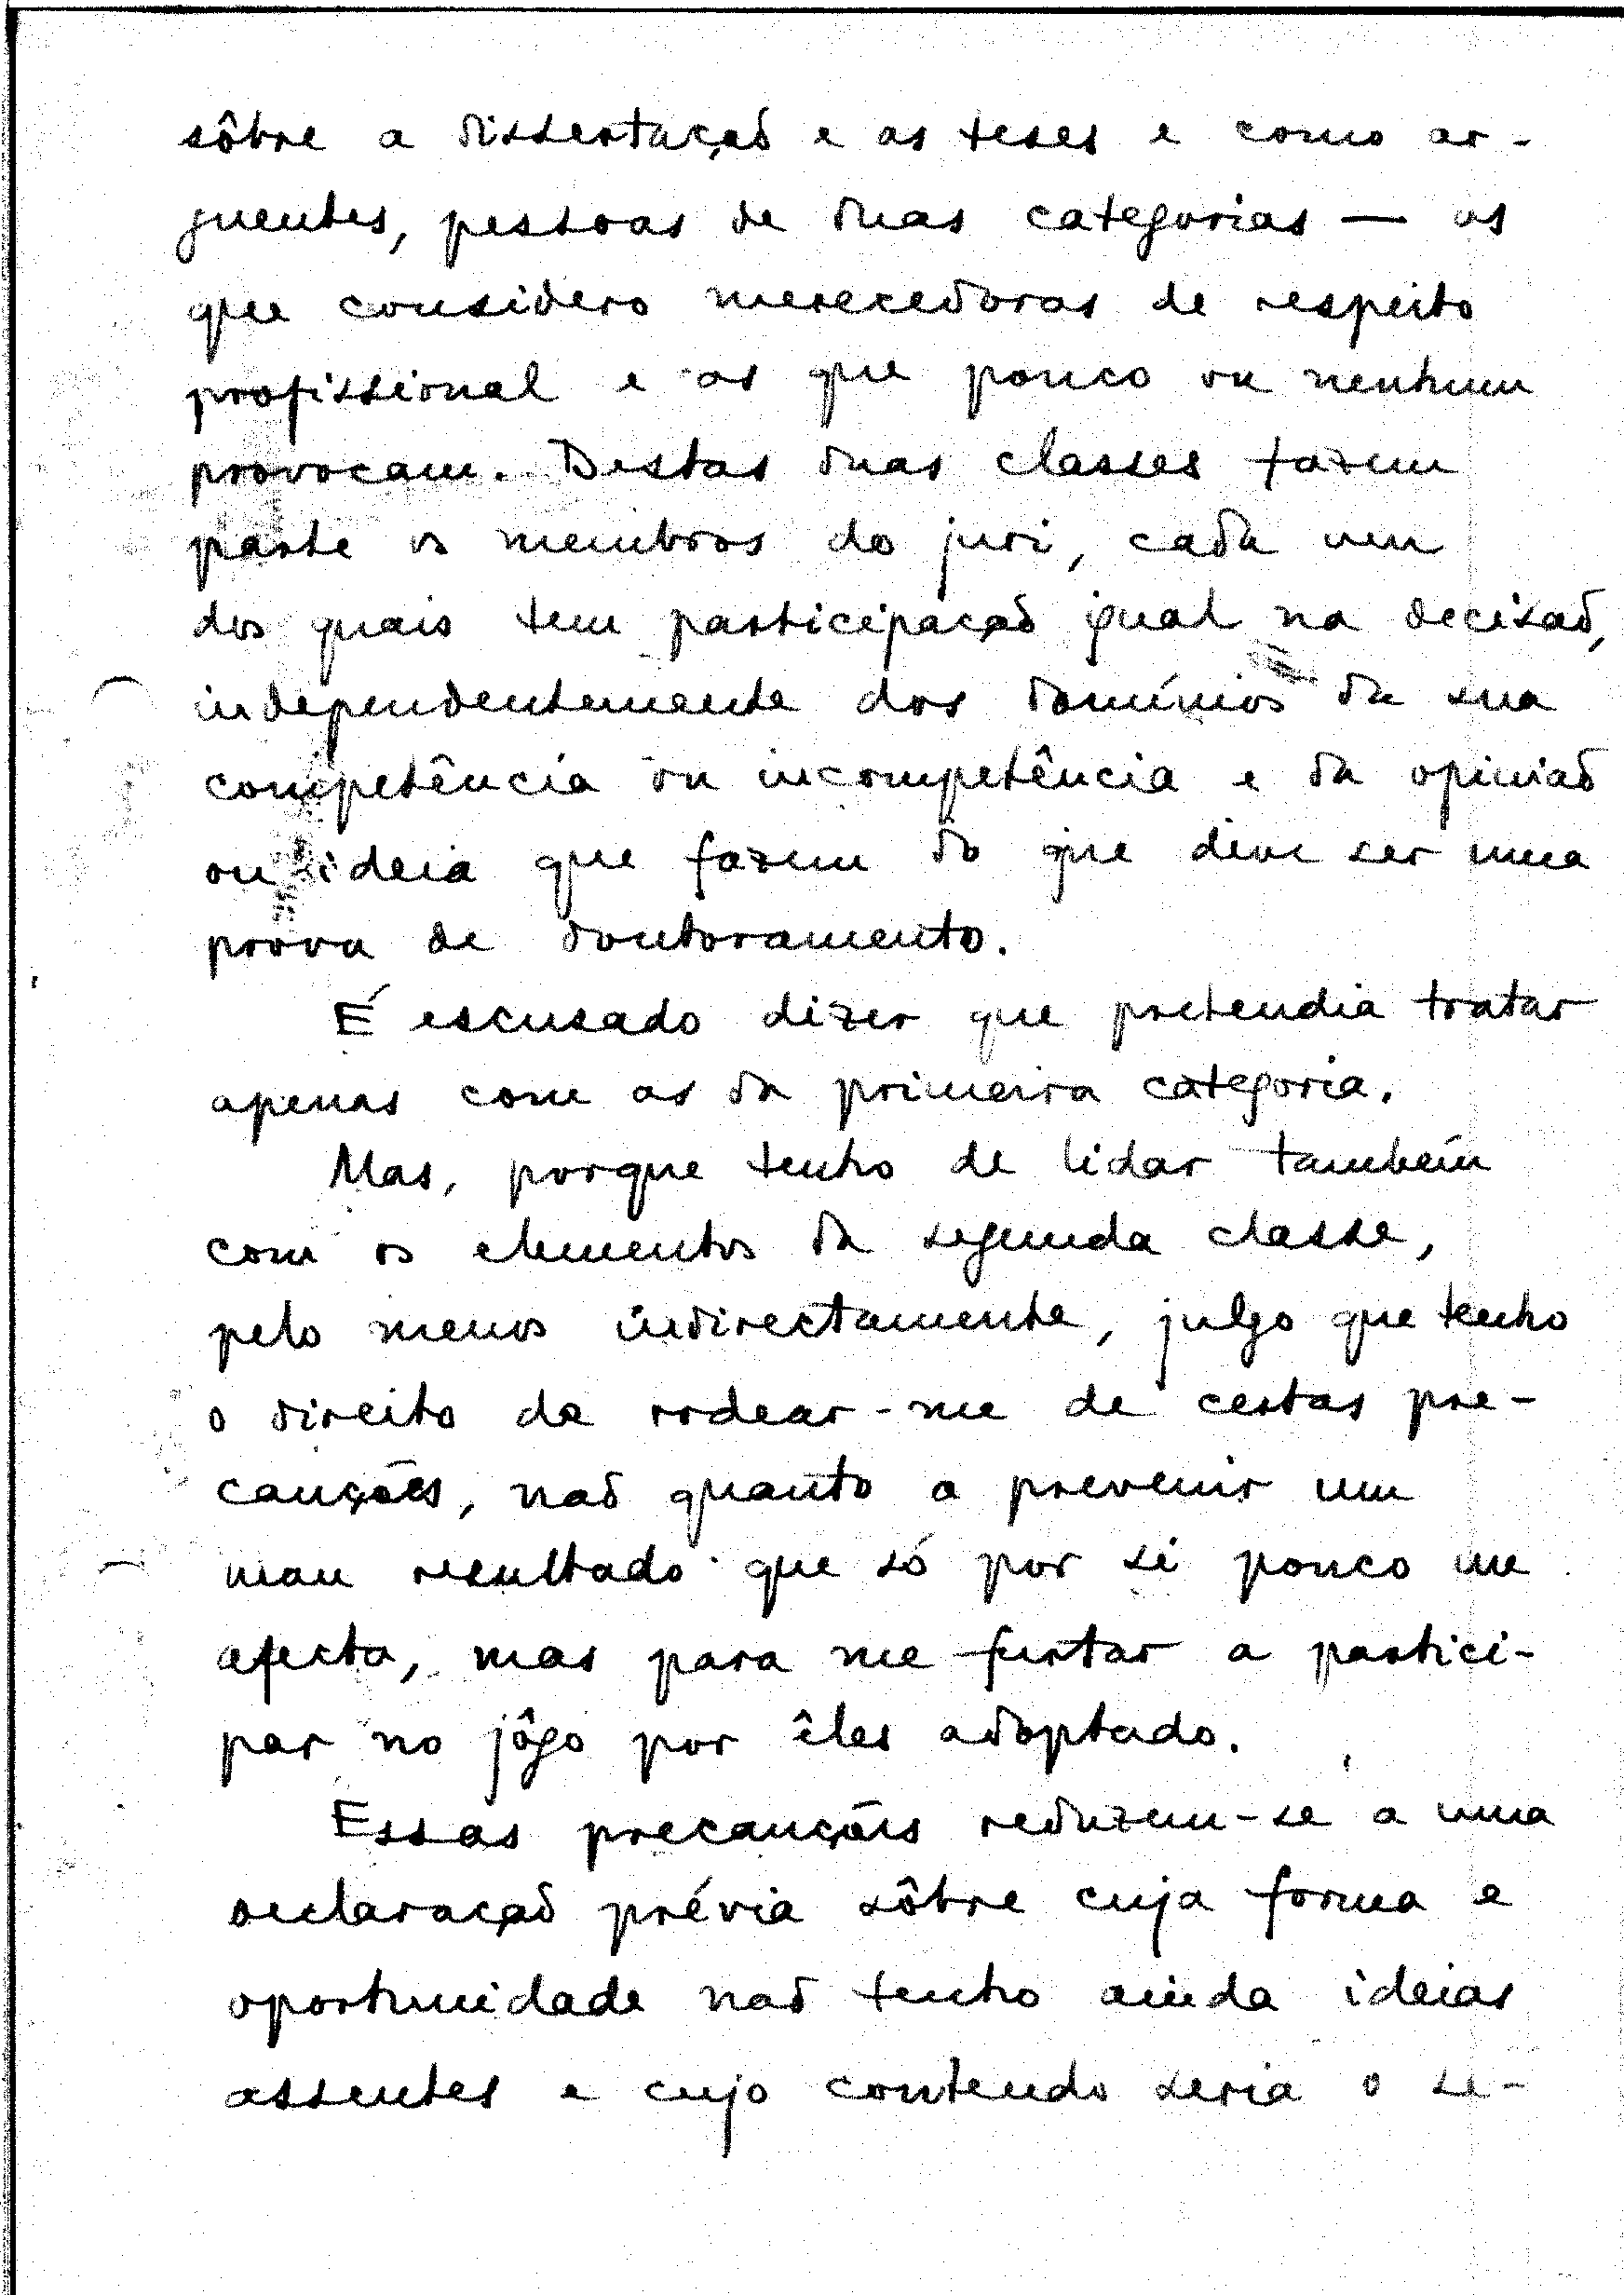 sôbre a dissertação e as teses e como ar-
guentes, pessoas de duas categorias — as
que considero merecedoras de respeito
profissional e as que pouco ou nenhum
provocam. Destas duas classes fazem
parte os membros do juri, cada um
dos quais tem participação igual na decisão,
independentemente dos domínios da sua
competência ou incompetência e da opinião
ou ideia que fazem do que deve ser uma
prova de doutoramento.
É escusado dizer que pretendia tratar
apenas com as da primeira categoria.
Mas, porque tenho de lidar também
com os elementos da segunda classe,
pelo menos indirectamente, julgo que tenho
o direito de rodear-me de certas pre-
cauções, não quanto a prevenir um
mau resultado que só por si pouco me
afecta, mas para me furtar a partici-
par no jôgo por êles adoptado.
Essas precauções reduzem-se a uma
declaração prévia sôbre cuja forma e
oportunidade não tenho ainda ideias
assentes e cujo conteudo seria o se-